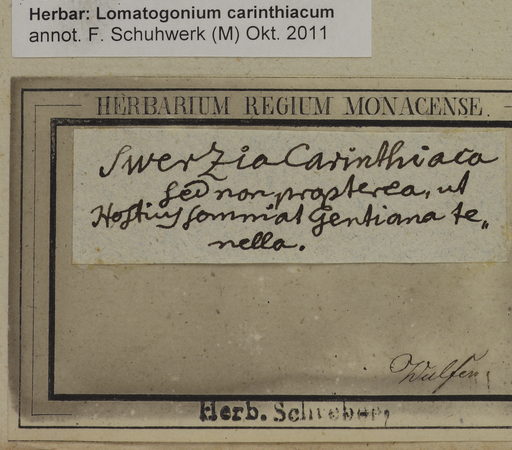 Herbar: Lomatogonium carinthiacum
annot. F. Schuhwerk (M) Okt. 2011
HERBARIUM REGIUM MONACENSE.
Swerzia Carinthiaca
sed non propterea, ut
Hostius somniat Gentiana te„
nella.
Wulfen,
Herb. Schreber,